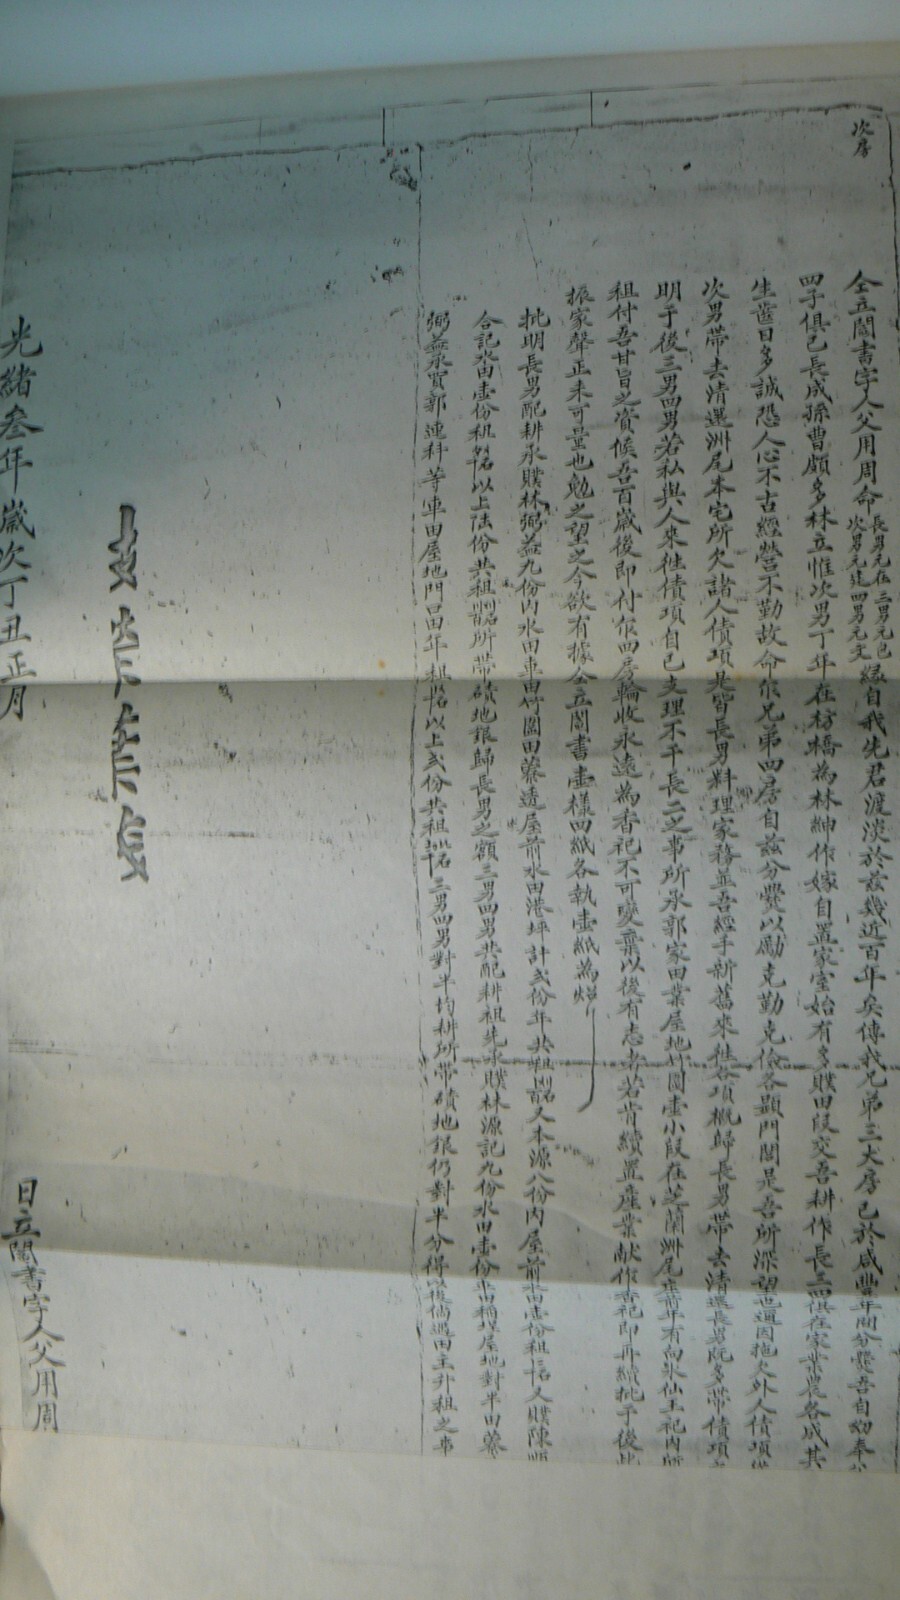 次房
仝立鬮書字人父用周命長男元在三男元己次男元達四男元文緣自我先君渡淡於茲幾近百年矣傳我兄弟三大房已於咸豐年間分爨吾自幼奉
四子俱已長成孫曹頗多林立惟次男丁年在枋橋為林紳作嫁自置家室始有多贌田段交吾耕作長三四俱在家業農各成其
生齒日多誠恐人心不古經營不勤故命作兄弟四房自茲分爨以勵克勤克儉各顯門閭是吾所深望也迴因拖欠外人債項
次男帶去清還洲尾本宅所欠諸人債項是皆長男料理家務並吾經手新舊來往各項概歸長男帶去清還長男既多帶債項
明于後三男四男若私與人來往債項自己支理不干長二之事所承郭家田業屋地竹圍壹小段在芝蘭洲尾庄前年有向水仙王祀內
租付吾甘旨之資候吾百歲後即付作四房輪收永遠為香祀不可變棄以後有志者若肯續置產業献作香祀即再續批于後
振家聲正未可量也勉之望之今欲有據仝立鬮書壹樣四紙各執壹紙為炤
批明長男配耕承贌林弼益九份內水田車田竹圍田藔透屋前水田港坪計弍份年共租 又本源八份內屋前水田壹份租 又贌陳
合記水田壹份租 以上陸份共租 所帶磧地銀歸長男之額三男四男共配耕祖先承贌林源記九份水田壹份 屋地對半田藔
弼益承買郭連科等車田屋地門口田年租 以上弍份共租 三男四男對半均耕所帶磧地銀仍對半分得以後倘遇田主升租之事
光緒叁年歲次丁丑正月 日立鬮書字人父用周